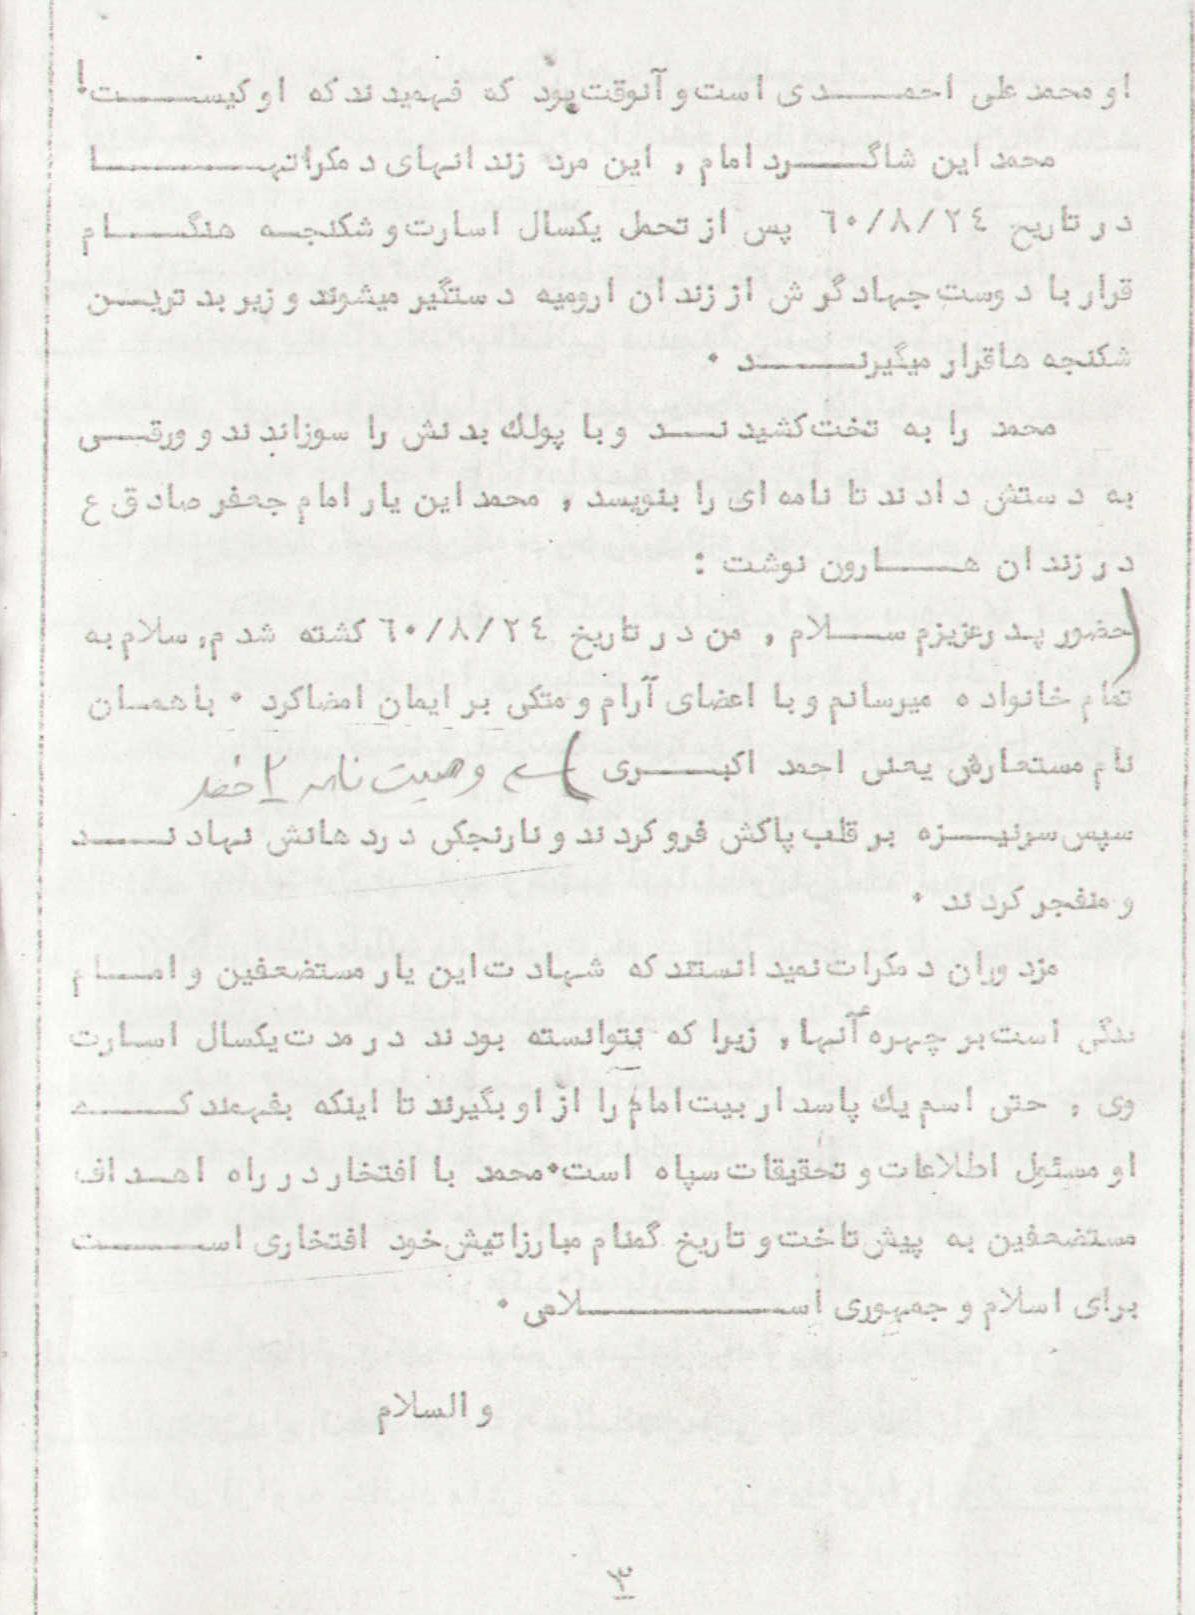 او محمد علی احمدی است و آنوقت بود که فهمیدند که او کیست!
محمد این شاگرد امام , این مرد زندانهای دمکراتها
در تاریخ ٦٠/٨/٢٤ پس از تحمل یکسال اسارت و شکنجه هنگام
قرار با دوست جهادگرش از زندان ارومیه دستگیر میشوند و زیر بدترین
شکنجه ها قرار میگیرند .
محمد را به تخت کشیدند و با پولك بدنش را سوزاندند و ورقی
به دستش دادند تا نامه ای را بنویسد , محمد این یار امام جعفر صادق ع
در زندان هارون نوشت :
(حضور پدر عزیزم سلام , من در تاریخ ٦٠/٨/٢٤ کشته شدم, سلام به
تمام خانواده میرسانم و با اعضای آرام و متکی بر ایمان امضا کرد . با همان
نام مستعارش یعنی احمد اکبری ) وصیت نامه ٢ خط
سپس سرنیزه بر قلب پاکش فرو کردند و نارنجکی در دهانش نهادند
و منفجر کردند .
مزدوران دمکرات نمیدانستند که شهادت این یار مستضعفین و امام
ننگی است بر چهره آنها, زیرا که نتوانسته بودند در مدت یکسال اسارت
وی , حتی اسم یك پاسدار بیت امام را از او بگیرند تا اینکه بفهمند که
او مسئول اطلاعات و تحقیقات سپاه است. محمد با افتخار در راه اهداف
مستضعفین به پیش تاخت و تاریخ گمنام مبارزاتیش خود افتخاری است
برای اسلام و جمهوری اسلامی .
والسلام
٣